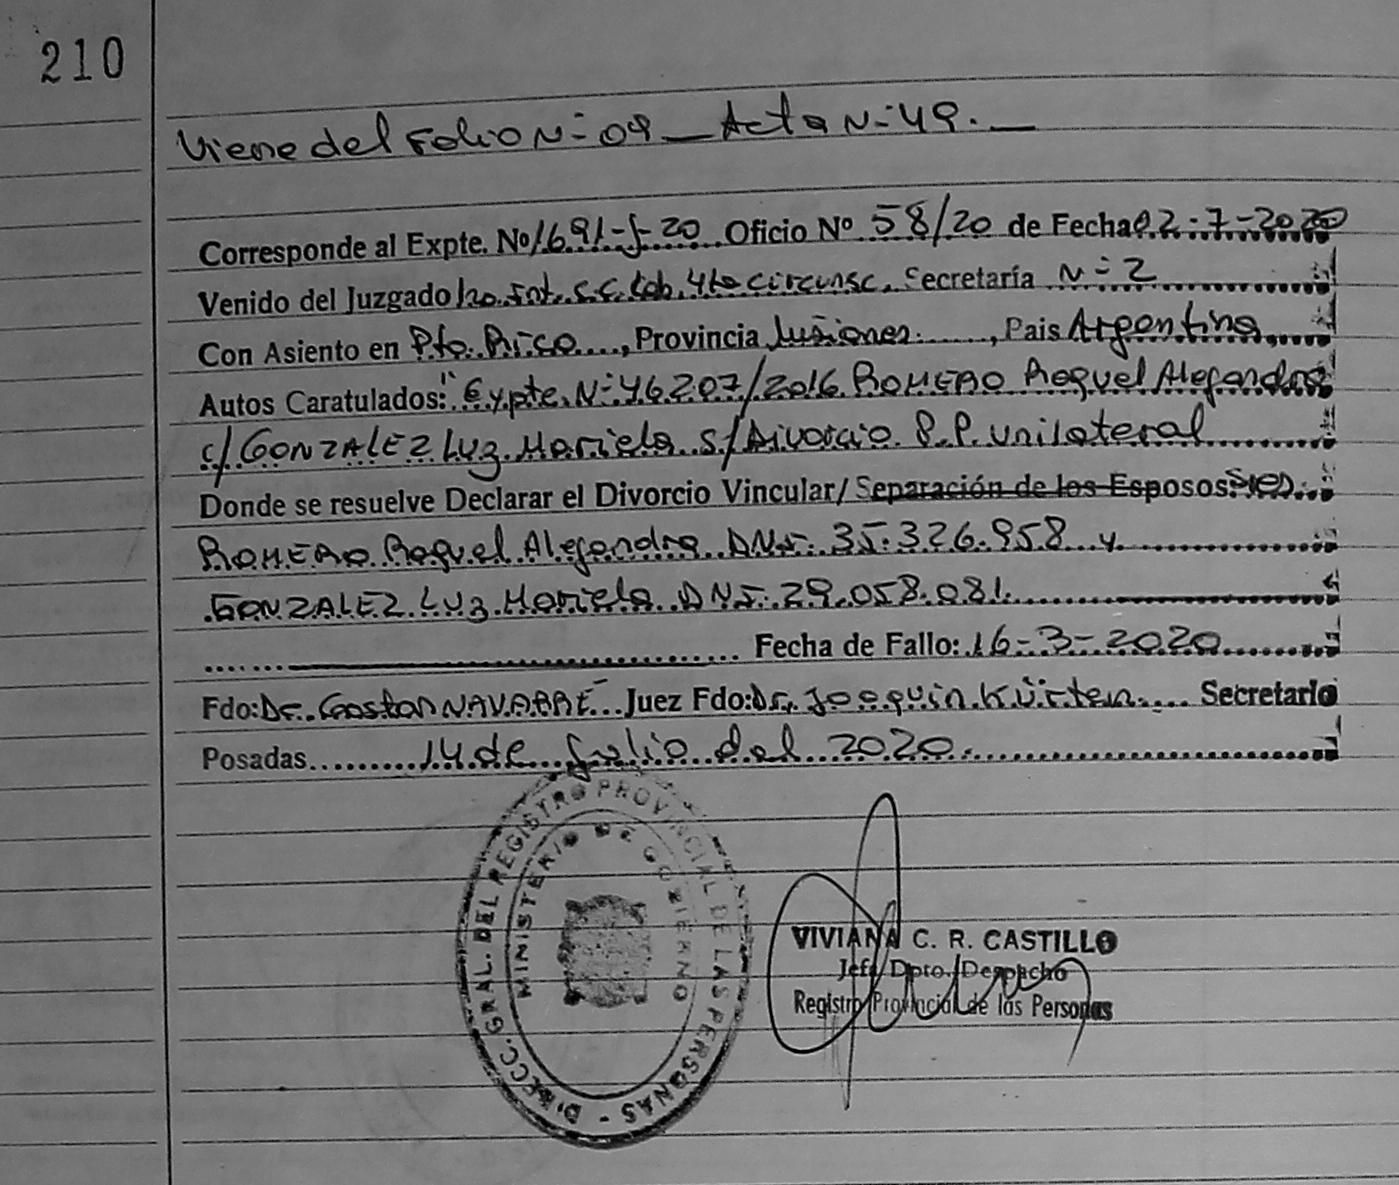 210
Viene del Folio N= 09 — Acta N= 49. —
Corresponde al Expte. Nº 1691-J-20 Oficio Nº 58/20 de Fecha 02-7-2020
Venido del Juzgado 1ro. Inst. C.C. Lab. 4ta circunsc. Secretaría N= 2
Con Asiento en Pto. Rico, Provincia Misiones, Pais Argentina
Autos Caratulados: "Expte. N= 46207/2016 ROMERO Raquel Alejandra
c/ GONZALEZ Luz Mariela s/ Divorcio P.P. unilateral
Donde se resuelve Declarar el Divorcio Vincular/ Separación de los Esposos:
ROMERO Raquel Alejandra DNI: 35.326.958 y
GONZALEZ Luz Mariela DNI: 29.058.081.
Fecha de Fallo: 16-3-2020
Fdo: Dr. Gaston NAVARRE Juez Fdo: Dr. Joaquin Kürten Secretario
Posadas 14 de Julio del 2020.
DIRECC. GRAL. DEL REGISTRO PROVINCIAL DE LAS PERSONAS -
MINISTERIO DE GOBIERNO
VIVIANA C. R. CASTILLO
Jefa Dpto. Despacho
Registro Provincial de las Personas